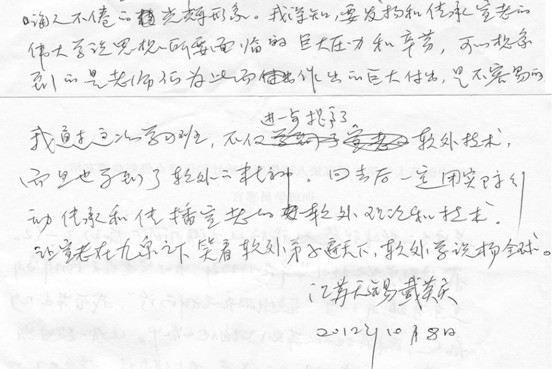 诲人不倦的光辉形象。我深知,要发扬和传承宣老的
伟大学说思想所要面临的巨大压力和辛劳,可以想象
到的是老师们为此而作出的巨大付出,是不容易的
进一步提高了
我通过这次学习班,不仅软外技术,
而且也学到了软外人精神。回去后一定用实际行
动传承和传播宣老的软外理论和技术。
让宣老在九泉之下笑看软外弟子遍天下,软外学说扬全球。
江苏无锡 戴
2012年10月8日